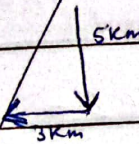 5Km
3Km